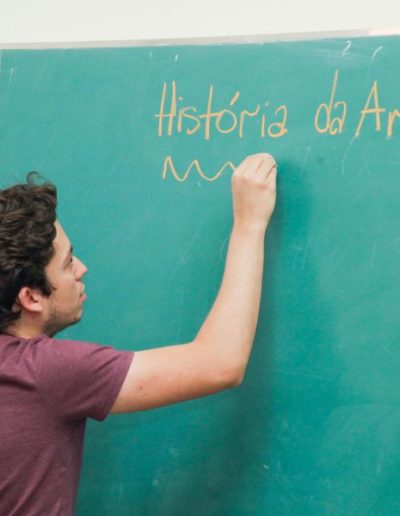 História da